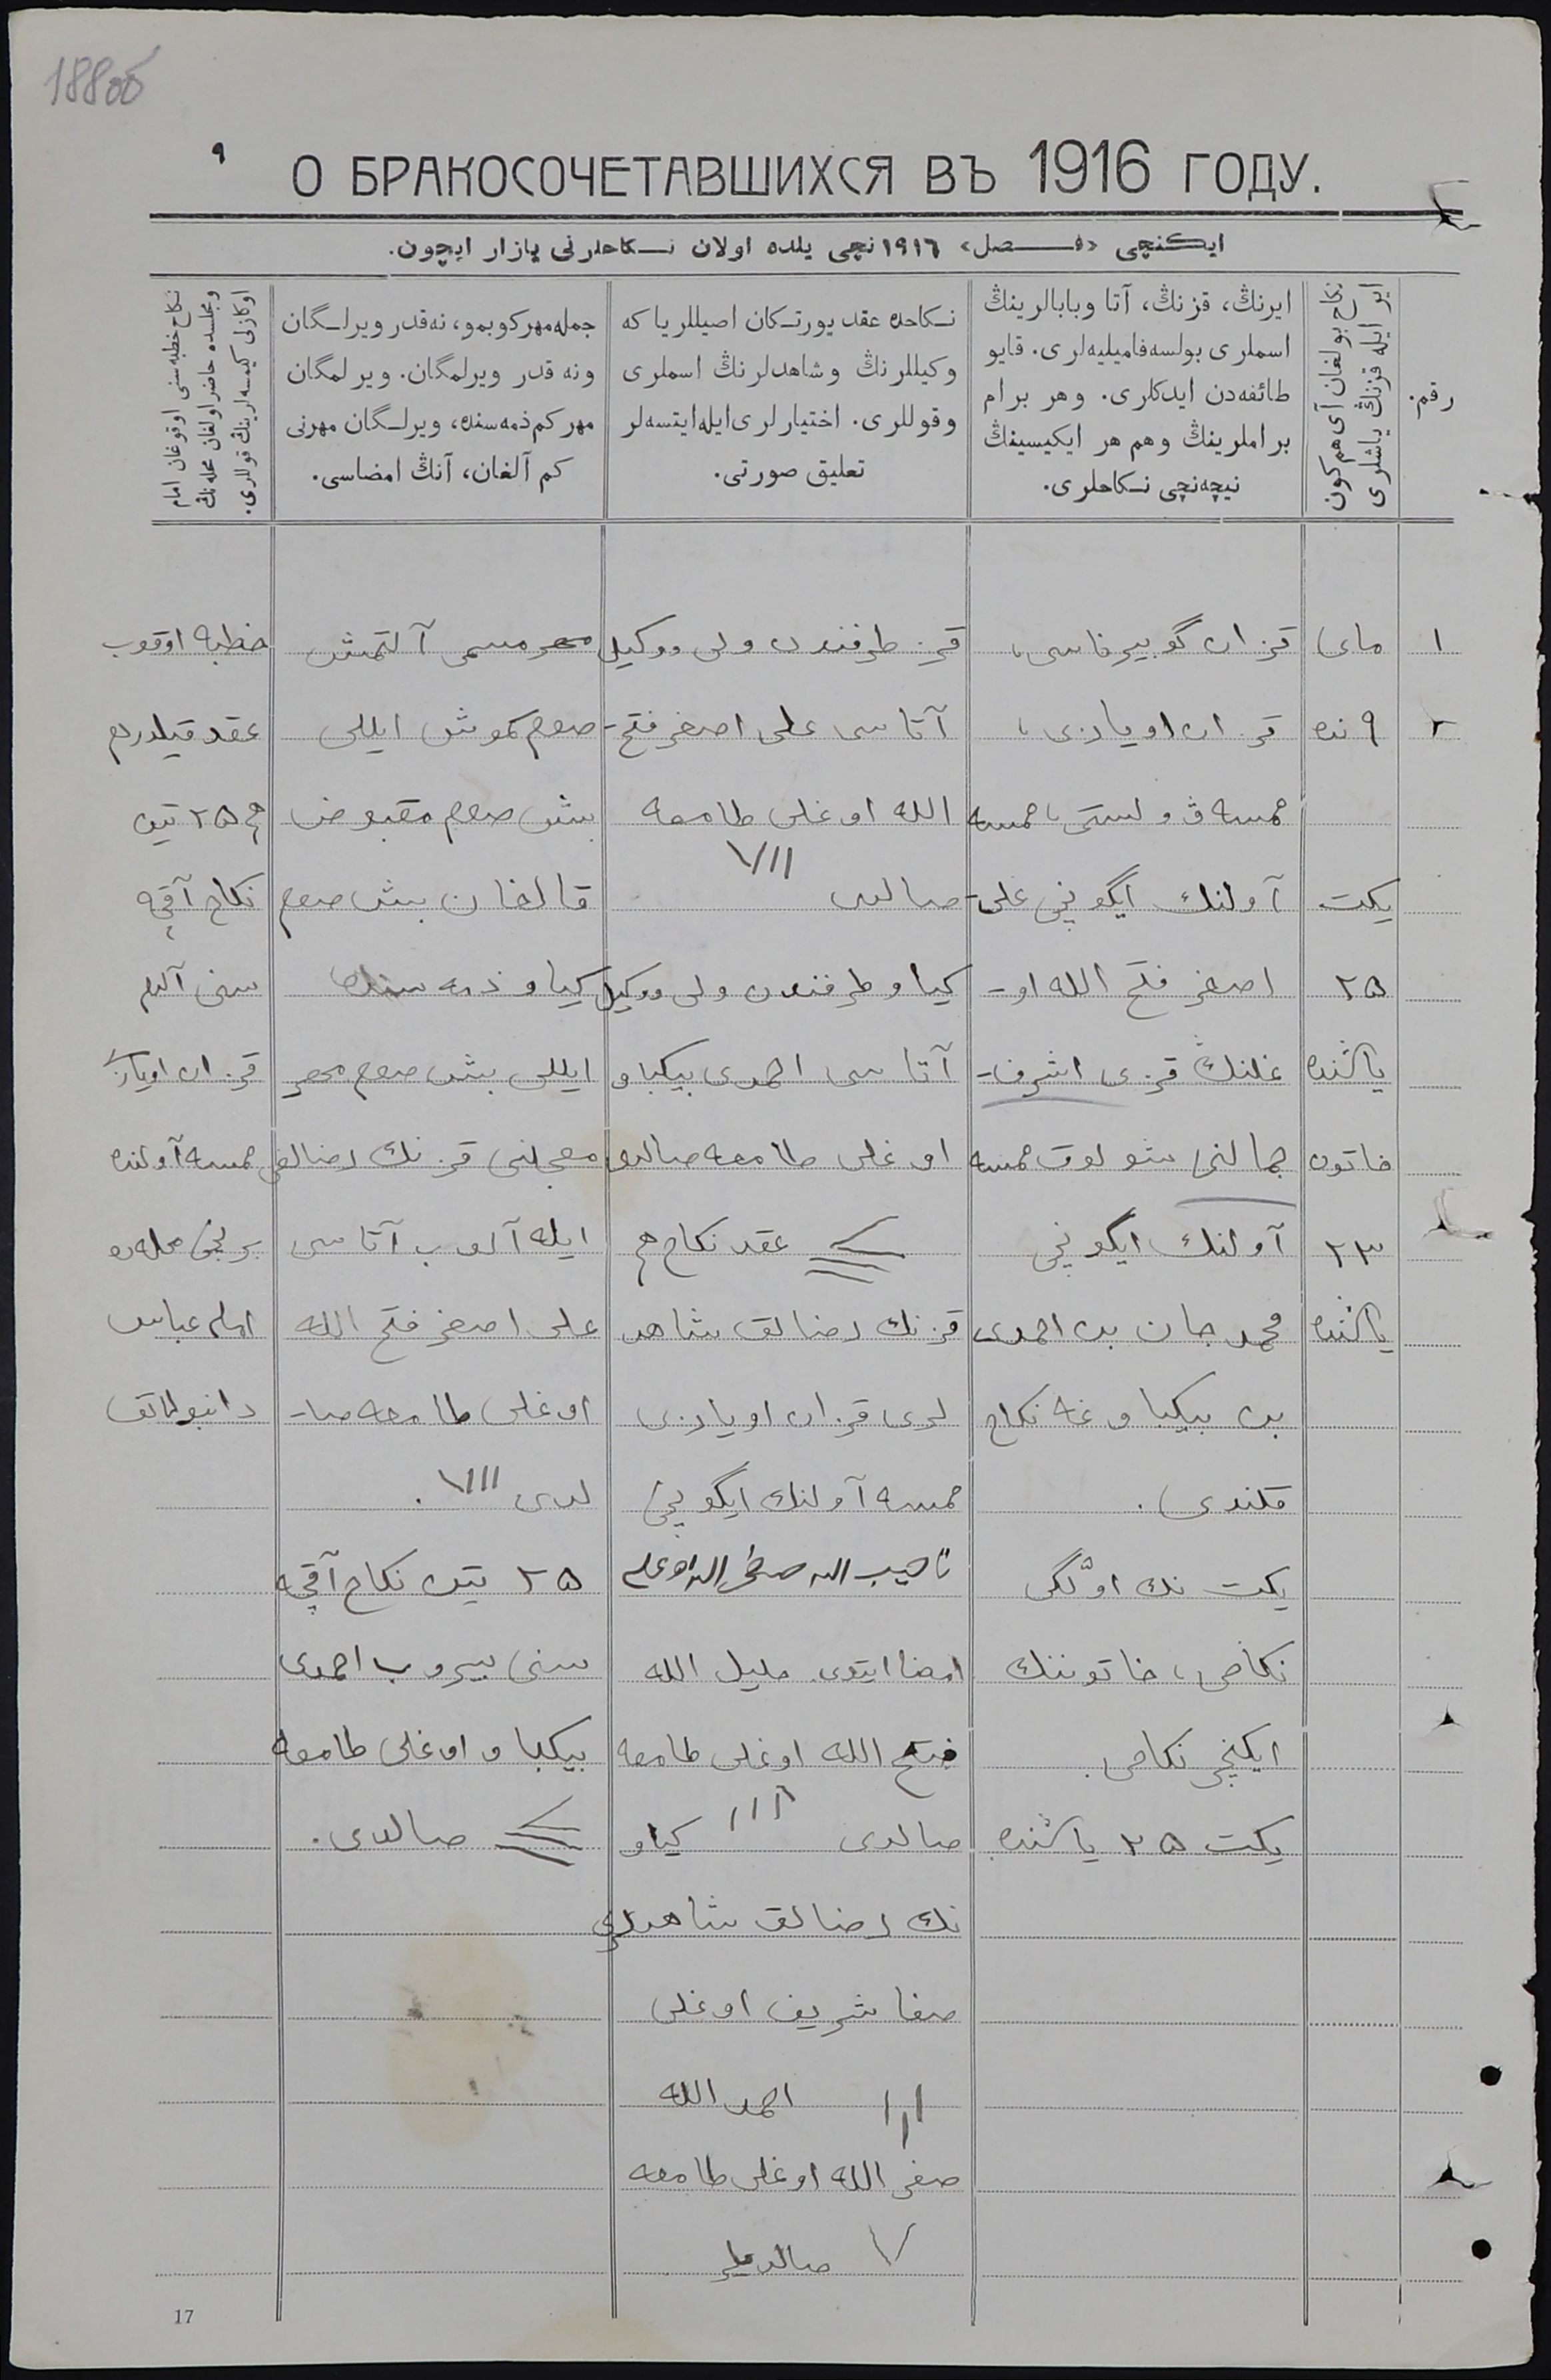 188об
٩
О БРАКОСОЧЕТАВШИХСЯ ВЪ 1916 ГОДУ.
ایکنچی «فصل» ١٩١٦ نچی یلده اولان نکاحلرنی یازار ایچون.
رقم.
نکاح بولغان آی هم کون
ایر ایله قزنڭ یاشلری
ایرنڭ، قزنڭ، آتا وبابالرینڭ
اسملری بولسه فامیلیه‌لری. قایو
طائفه‌دن ایدکلری. وهر برام
براملرینڭ وهم هر ایکیسینڭ
نیچه‌نچی نکاحلری.
نکاحده عقد یورتکان اصیللر یا که
وکیللرنڭ وشاهدلرنڭ اسملری
وقوللری. اختیارلری ایله ایتسه‌لر
تعلیق صورتی.
جمله مهر کوبمو، نه‌قدر ویرلگان
ونه قدر ویرلمگان. ویرلمگان
مهر کم ذمه سنده، ویرلگان مهرنی
کم آلغان، آنڭ امضاسی.
نکاح خطبه‌سنی اوقوغان امام
ومجلسده حاضر اولغان محله‌نڭ
اوکازنی کیمسه‌لرینڭ قوللری.
١
٢
مای
٩ نده
یکت
٢٥
یاشنده
خاتون
٢٣
یاشنده
قزان گوبیرناسی،
قزان اویازی،
حمسه ۋولستی، حمسه
آولنڭ ایگونچی علی-
اصغر فتح الله او-
غلنڭ قزی اشرف-
جمالنی شولوق حمسه
آولنڭ ایگونچی
محمد جان بن احمدی
بن بیکباوغه نکاح
قلندی.
یکت نڭ اوّلگی
نکاحی، خاتوننڭ
ایکنچی نکاحی.
یکت ٢٥ یاشنده.
قز طرفندن ولی ووکیل
آتاسی علی اصغر فتح-
الله اوغلی طامغه
صالدی
کیاو طرفندن ولی ووکیل
آتاسی احمدی بیکباو
اوغلی طامغه صالدی
عقد نکاح هم
قزنڭ رضالق شاهد
لری قزان اویازی
حمسه آولنڭ ایگونچی
امضا ایتدی. خلیل الله
فتح الله اوغلی طامغه
صالدی کیاو
نڭ رضالق شاهدلری
صفا شریف اوغلی
احمد الله
صفی الله اوغلی طامغه
صالدیلر
مهر مسمی آلتمش
صوم کموش ایللی
بش صوم مقبوض
قالغان بش صوم
کیاو ذمه سنده
ایللی بش صوم مهر
معجلنی قزنڭ رضالغی
ایله آلوب آتاسی
علی اصغر فتح الله
اوغلی طامغه صا-
لدی.
٢٥ تین نکاح آقچه
سنی بیروب احمدی
بیکباو اوغلی طامغه
صالدی.
خطبه اوقوب
عقد قیلدرم
هم ٢٥ تین
نکاح آقچه
سنی آلدم
قزان اویازی
حمسه آولنده
برنچی محله ده
امام عباس
17